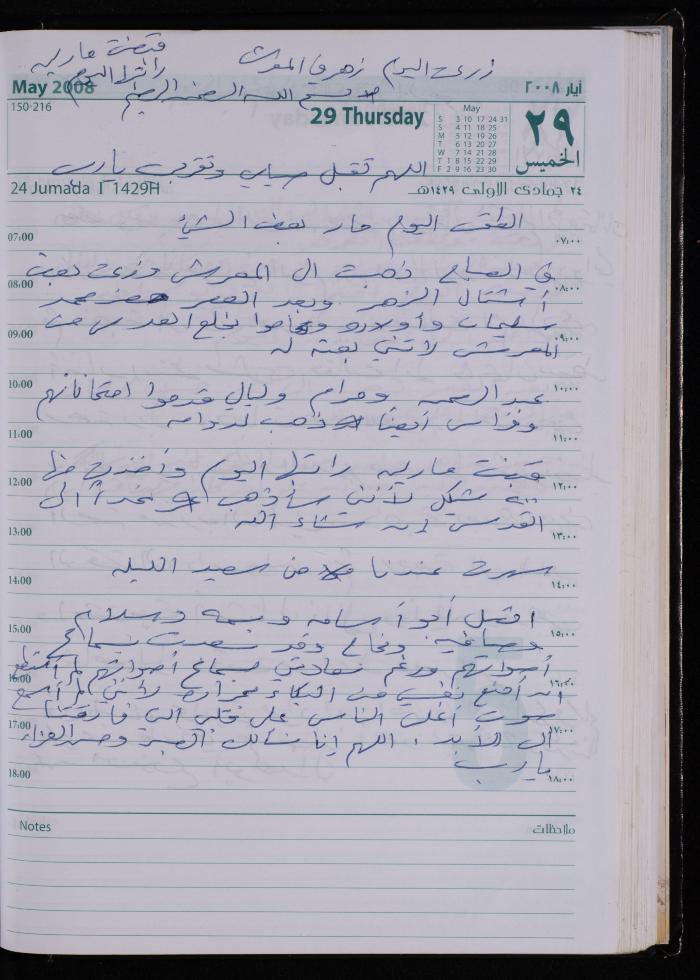 زرعت اليوم زهر في المعرش
قبضت مارلين راتبها اليوم
بسم الله الرحمن الرحيم
May 2008
أيار ٢٠٠٨
150-216
29 Thursday
May
S 3 10 17 24 31
S 4 11 18 25
M 5 12 19 26
T 6 13 20 27
W 7 14 21 28
T 1 8 15 22 29
F 2 9 16 23 30
٢٩
الخميس
اللهم تقبل صيامي وتقربي يا رب
24 Jumada I 1429H
٢٤ جمادى الأولى ١٤٢٩هـ
الطقس اليوم حار بعض الشيء
07:00 ٠٧:٠٠
في الصباح ذهبت الى المعرش وزرعت بعض
08:00 ٠٨:٠٠
أشتال الزهر وبعد العصر حضر محمد
سليمان وأولاده وقاموا بخلع العدس من
09:00 ٠٩:٠٠
المعرش لأنني بعته له
10:00 ١٠:٠٠
عبد الرحمن ومرام وليالي قدموا امتحاناتهم
وفراس أيضاً ذهب لدوامه
11:00 ١١:٠٠
قبضت مارلين راتبها اليوم وأخذت منها
12:00 ١٢:٠٠
شيكل لأنني سأذهب غداً الى
القدس إن شاء الله
13:00 ١٣:٠٠
سهرت عندنا سعيد الليلة
14:00 ١٤:٠٠
اتصل أبو أسامه وبسمه وسلام
15:00 ١٥:٠٠
وصافيه ونجاح وقد سعدت بسماع
أصواتهم ورغم سعادتي بسماع أصواتهم لم أستطع
16:00 ١٦:٠٠
أن أمنع نفسي من البكاء لأنني لم أسمع
صوت أغلى الناس على قلبي التي فارقتنا
17:00 ١٧:٠٠
الى الأبد. اللهم إنا نسألك الصبر وحسن العزاء
يا رب
18:00 ١٨:٠٠
Notes
ملاحظات